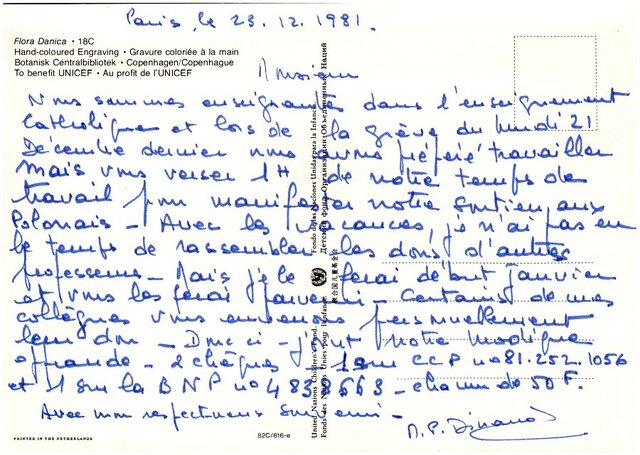 Paris, le 23.12.1981.
Flora Danica • 18C
Hand-coloured Engraving • Gravure coloriée à la main
Botanisk Centralbibliotek • Copenhagen/Copenhague
To benefit UNICEF • Au profit de l'UNICEF
Monsieur
Nous sommes enseignants dans l'enseignement
Catholique et lors de la grève du lundi 21
Décembre dernier nous avons préféré travailler
Mais vous verser 1H de notre temps de
travail pour manifester notre soutien aux
Polonais - Avec les vacances, je n'ai pas eu
le temps de rassembler les dons d'autres
professeurs - Mais je le ferai début janvier
et vous les ferai parvenir - Certains de mes
collègues vous enverrons personnellement
leur don - Donc ci-joint notre modique
offrande - 2 chèques - 1 sur CCP no 81.252.1056
et 1 sur la BNP no 4833563 - chacun de 50 F.
Avec mon respectueux souvenir -
M. P.
United Nations Children's Fund
Fonds des Nations Unies pour l'enfance
Fondo de las Naciones Unidas para la Infancia
Детский фонд Организации Объединенных Наций
联合国儿童基金会
PRINTED IN THE NETHERLANDS
82C/616-e